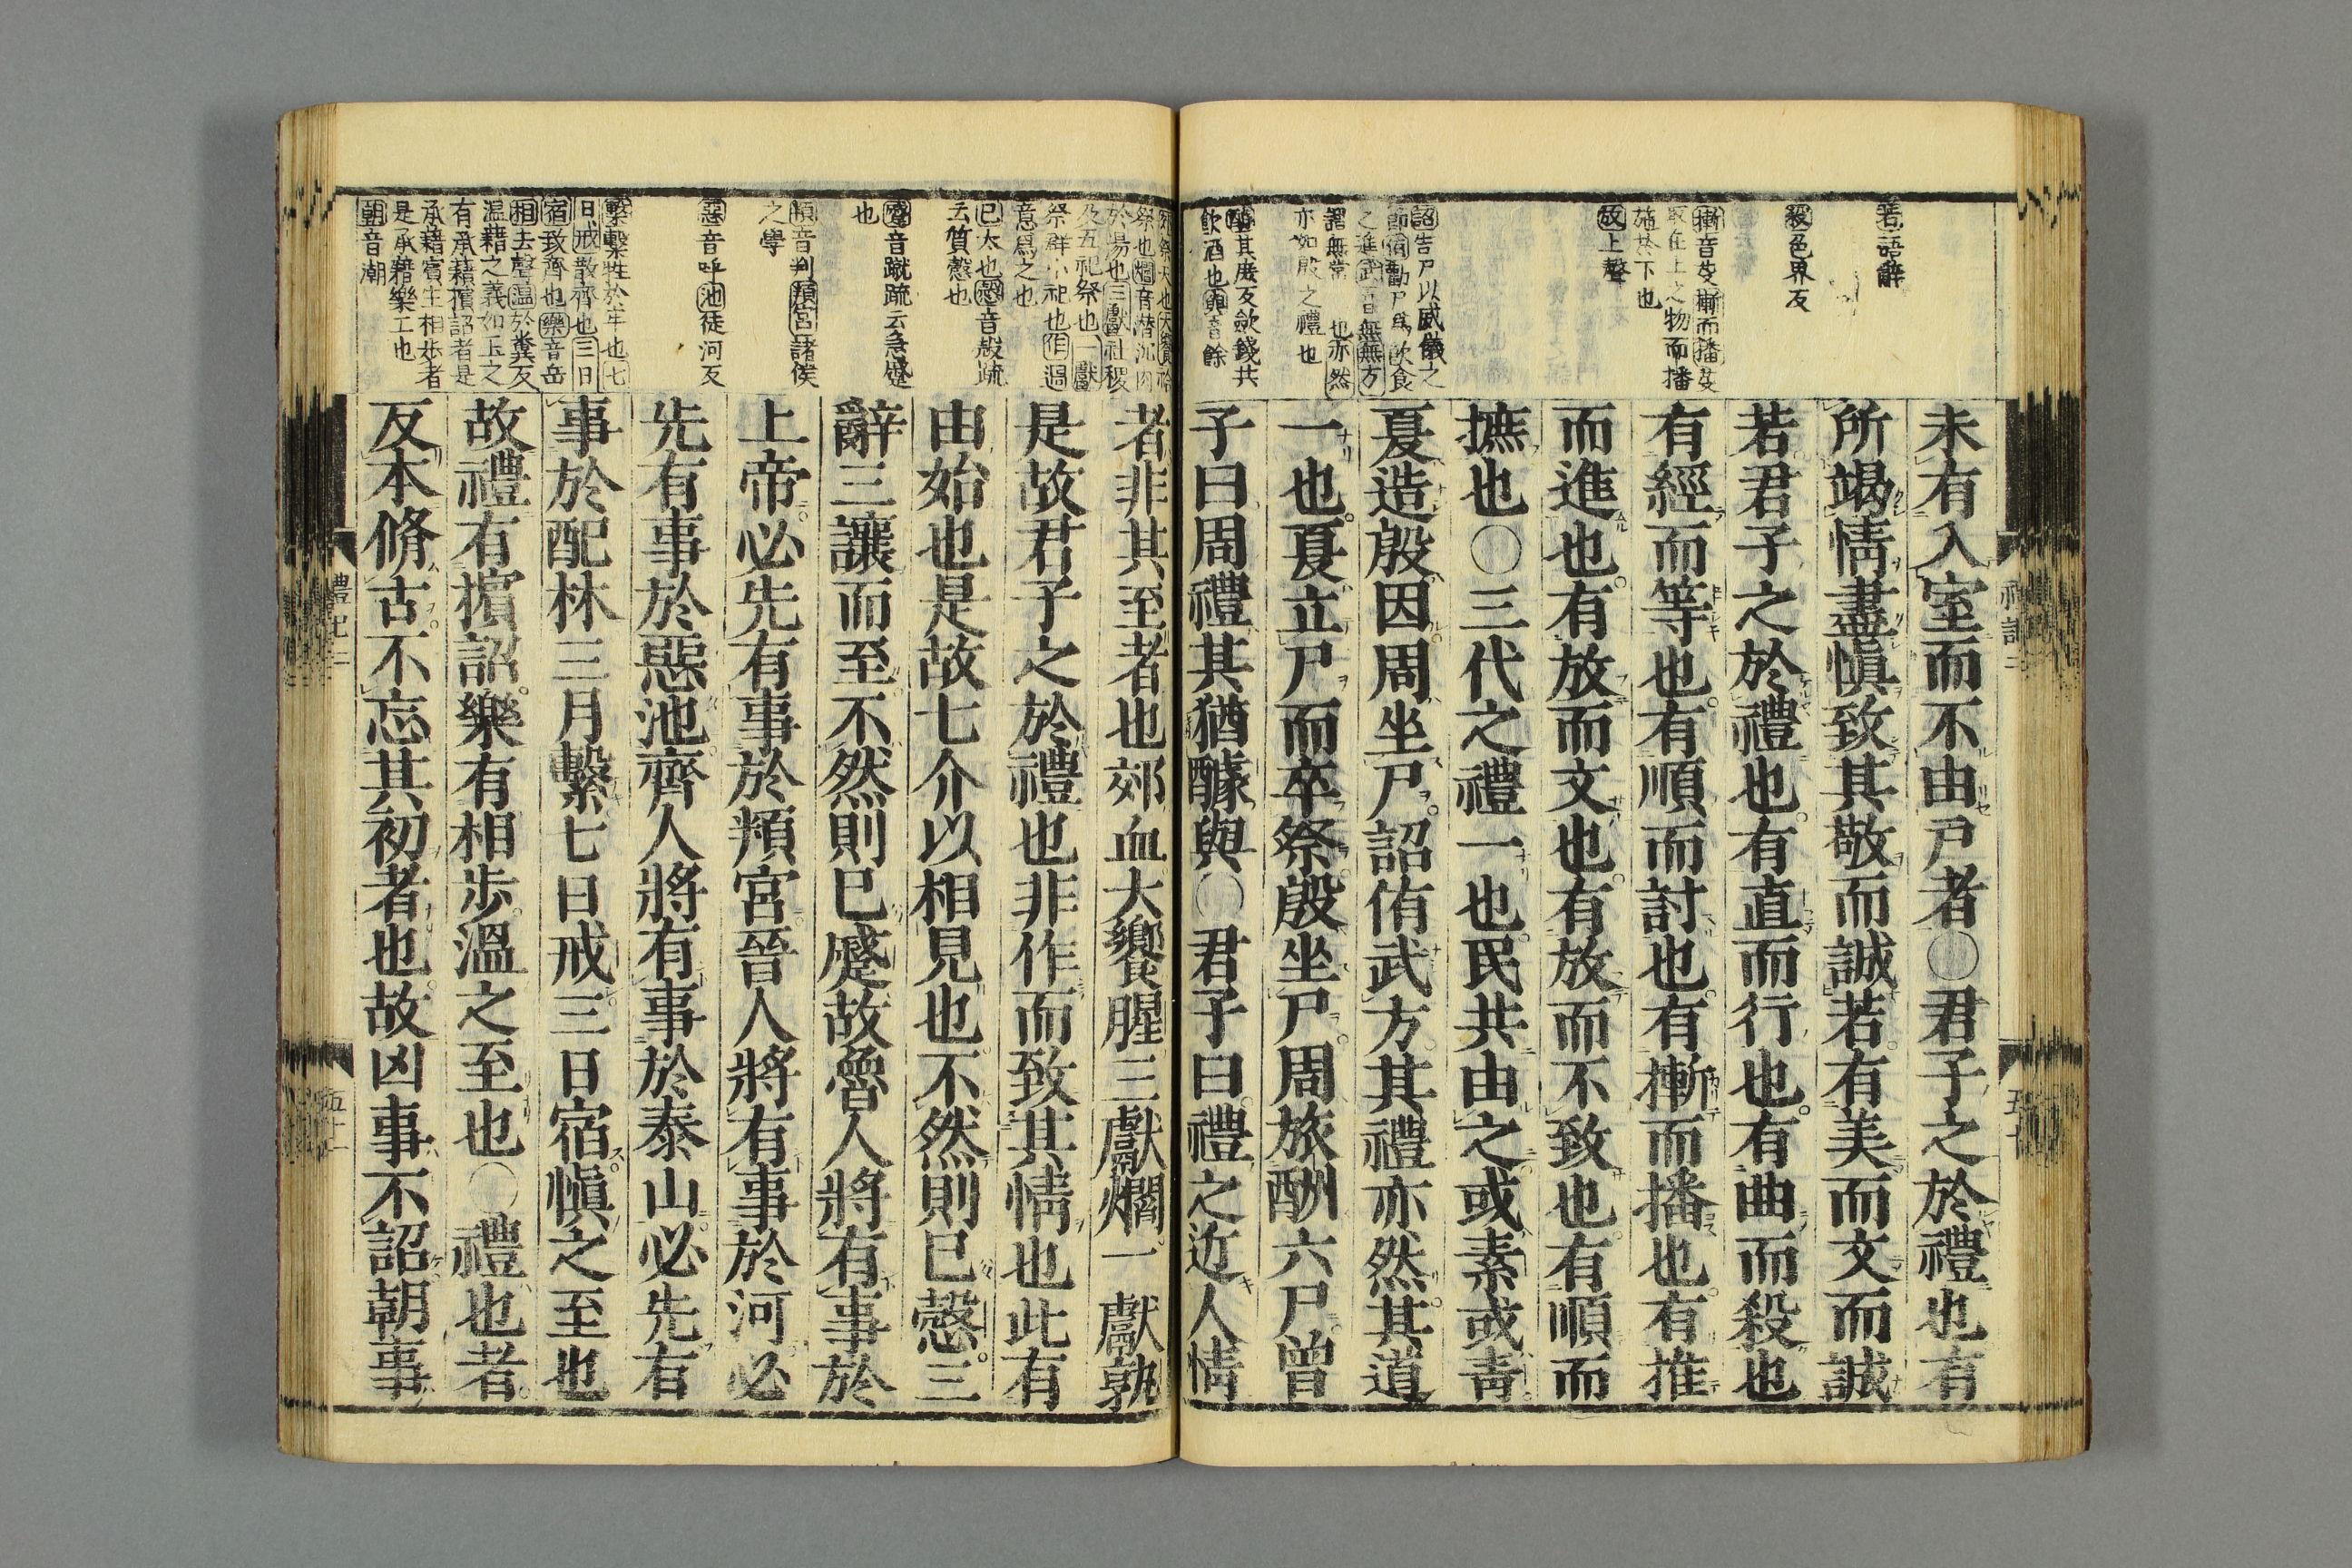 若語辭
殺色界反
摲音芟摲而播芟
取在上之物而播
施於下也
放上聲
詔告尸以威儀之
節侑勸尸爲飲食
之進武音無無方
謂無常也亦然
亦如殷之禮也
醵其庶反歛錢共
飲酒也與音餘
未有入室而不由戸者○君子之於禮也有
所竭情盡愼致其敬而誠若有美而文而誠
若君子之於禮也有直而行也有曲而殺也
有經而等也有順而討也有摲而播也有推
而進也有放而文也有放而不致也有順而
摭也○三代之禮一也民共由之或素或靑
夏造殷因周坐尸詔侑武方其禮亦然其道
一也夏立尸而卒祭殷坐尸周旅酬六尸曾
子曰周禮其猶醵與○君子曰禮之近人情
祭也爓音潜沉肉
於湯也三獻社稷
及五祀祭也一獻
祭群小祀也作過
意爲之也
已太也愨音殻疏
云質愨也
蹙音蹴疏云急蹙
也
頖音判頖宮諸侯
之學
惡音呼池徒河反
繫繫牲於牢也七
日戒散齊也三日
宿致齊也樂音岳
相去聲温於糞反
温藉之義如玉之
有承藉擯詔者是
承藉賓主相歩者
是承藉樂工也
朝音潮
者非其至者也郊血大饗腥三獻爓一獻孰
是故君子之於禮也非作而致其情也此有
由始也是故七介以相見也不然則已愨三
辭三讓而至不然則已蹙故魯人將有事於
上帝必先有事於頖宮晉人將有事於河必
先有事於惡池齊人將有事於泰山必先有
事於配林三月繫七日戒三日宿愼之至也
故禮有擯詔樂有相歩溫之至也○禮也者
反本脩古不忘其初者也故凶事不詔朝事
禮記二
五十一